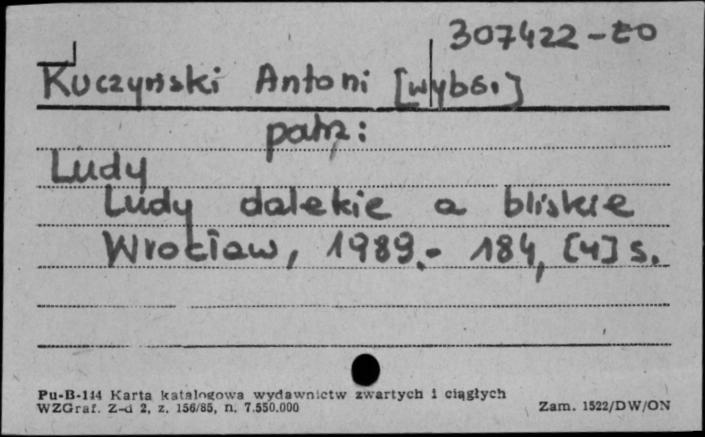 307422-ŁO
Kuczyński Antoni [wybór.]
patrz:
Ludy
Ludy dalekie a bliskie
Wrocław, 1989.- 184, [4] s.
Pu-B-144 Karta katalogowa wydawnictw zwartych i ciągłych
WZGraf. Z-d 2, z. 156/85, n. 7.550.000
Zam. 1522/DW/ON